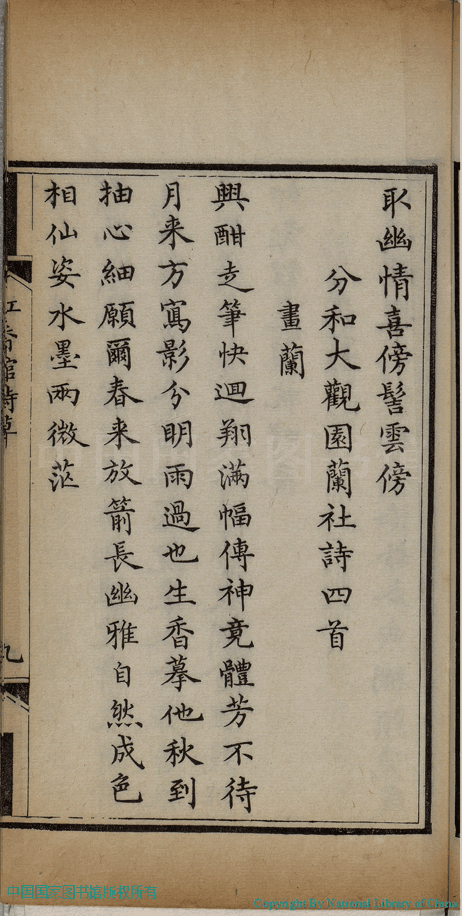 取幽情喜傍髻雲傍
分和大觀園蘭社詩四首
畫蘭
興酣走筆快迴翔滿幅傳神竟體芳不待
月来方寫影分明雨過也生香摹他秋到
抽心細願爾春来放箭長幽雅自然成色
相仙姿水墨兩微茫
紅香館詩草
九
中国国家图书馆版权所有
Copyright By National Library of China